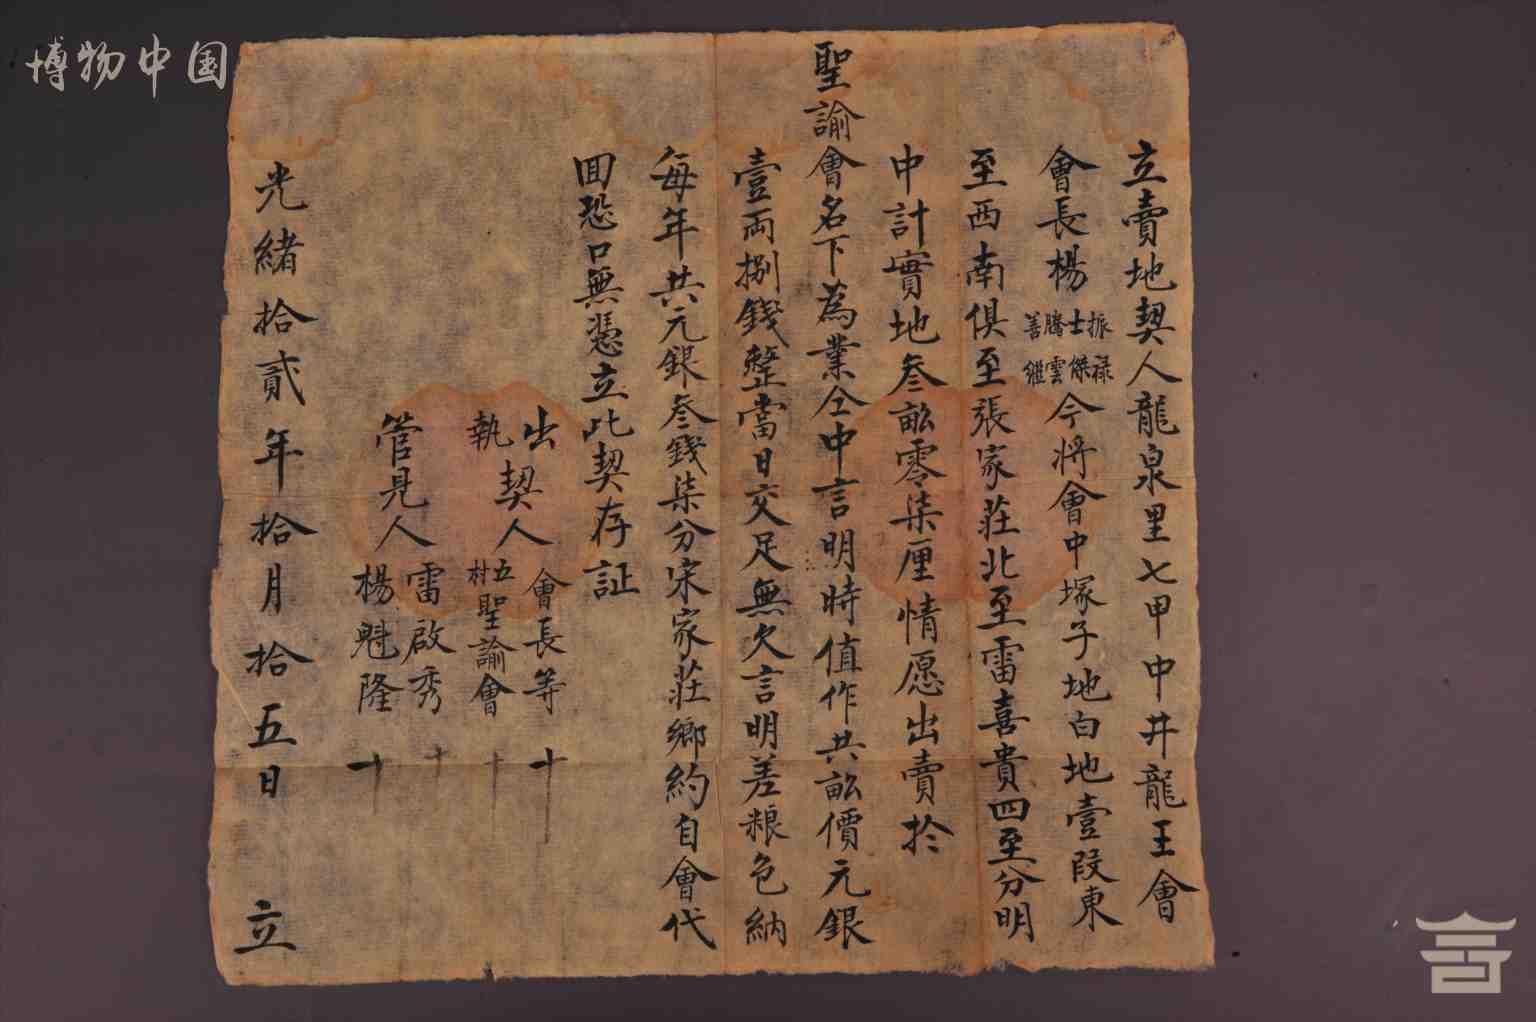 博物中国
立賣地契人龍泉里七甲中井龍王會
會長楊振禄士傑騰雲善繼今將會中塚子地白地壹段東
至西南俱至張家莊北至雷喜貴四至分明
中計實地叁畝零柒厘情愿出賣於
聖諭會名下為業仝中言明時值作共畝價元銀
壹兩捌錢整當日交足無欠言明差粮色納
每年共元銀叁錢柒分宋家莊鄉約自會代
囬恐口無憑立此契存証
出契人會長等十
執契人五村聖諭會十
管見人雷啟秀十
楊魁隆十
光緒拾貳年拾月拾五日立